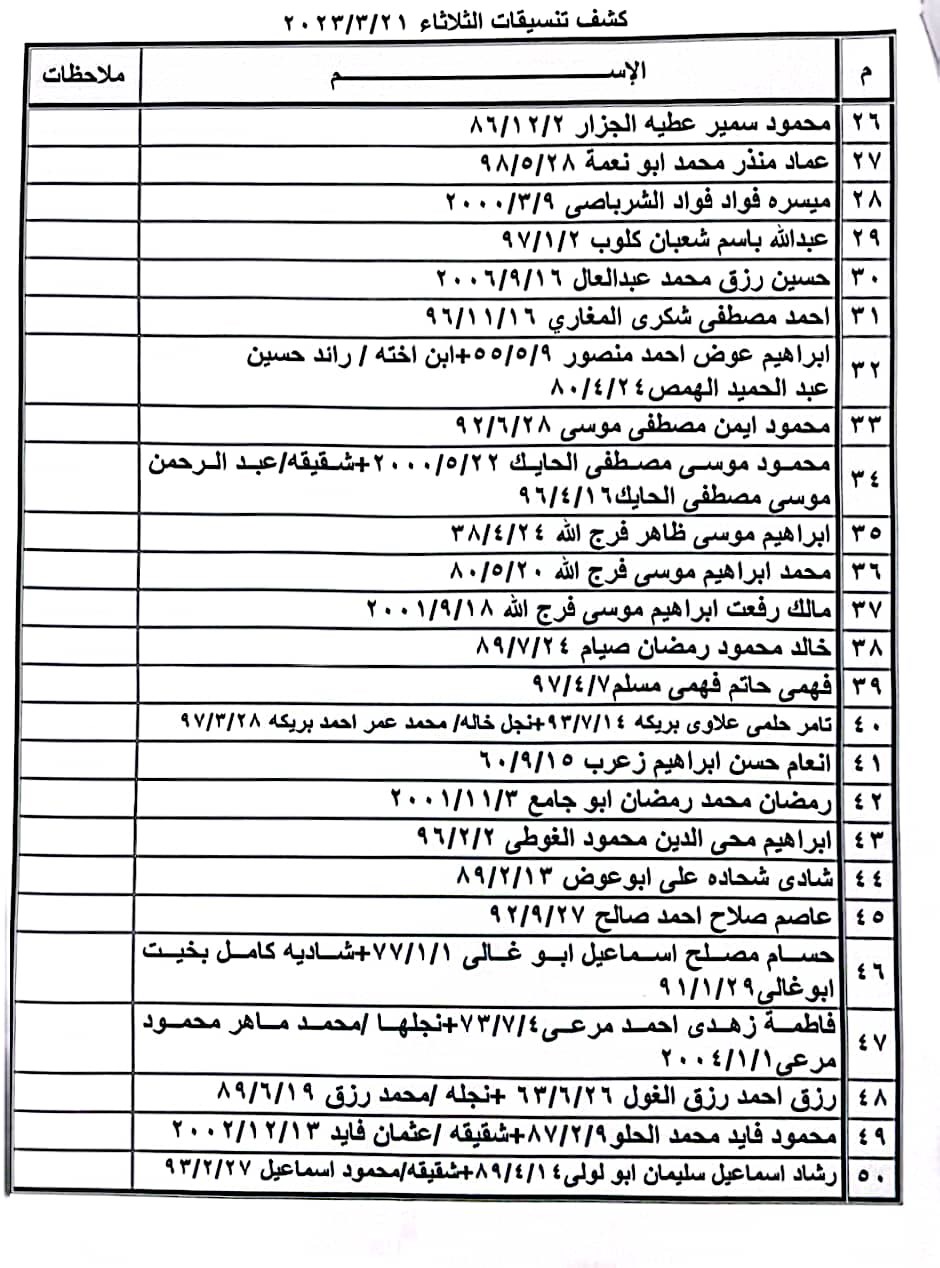 كشف تنسيقات الثلاثاء ٢٠٢٣/٣/٢١
م الإســـــــم ملاحظات
٢٦ محمود سمير عطيه الجزار ٨٦/١٢/٢
٢٧ عماد منذر محمد ابو نعمة ٩٨/٥/٢٨
٢٨ ميسره فواد فواد الشرباصى ٢٠٠٠/٣/٩
٢٩ عبدالله باسم شعبان كلوب ٩٧/١/٢
٣٠ حسين رزق محمد عبدالعال ٢٠٠٦/٩/١٦
٣١ احمد مصطفى شكرى المغاري ٩٦/١١/١٦
٣٢ ابراهيم عوض احمد منصور ٥٥/٥/٩+ابن اخته / رائد حسين
عبد الحميد الهمص٨٠/٤/٢٤
٣٣ محمود ايمن مصطفى موسى ٩٢/٦/٢٨
٣٤ محمود موسى مصطفى الحايك ٢٠٠٠/٥/٢٢+شقيقه/عبد الرحمن
موسى مصطفى الحايك٩٦/٤/١٦
٣٥ ابراهيم موسى ظاهر فرج الله ٣٨/٤/٢٤
٣٦ محمد ابراهيم موسى فرج الله ٨٠/٥/٢٠
٣٧ مالك رفعت ابراهيم موسى فرج الله ٢٠٠١/٩/١٨
٣٨ خالد محمود رمضان صيام ٨٩/٧/٢٤
٣٩ فهمى حاتم فهمى مسلم٩٧/٤/٧
٤٠ تامر حلمى علاوى بريكه ٩٣/٧/١٤+نجل خاله/ محمد عمر احمد بريكه ٩٧/٣/٢٨
٤١ انعام حسن ابراهيم زعرب ٦٠/٩/١٥
٤٢ رمضان محمد رمضان ابو جامع ٢٠٠١/١١/٣
٤٣ ابراهيم محى الدين محمود الغوطى ٩٦/٢/٢
٤٤ شادى شحاده على ابوعوض ٨٩/٢/١٣
٤٥ عاصم صلاح احمد صالح ٩٢/٩/٢٧
٤٦ حسام مصلح اسماعيل ابو غالى ٧٧/١/١+شاديه كامل بخيت
ابوغالى٩١/١/٢٩
٤٧ فاطمة زهدى احمد مرعى٧٣/٧/٤+نجلها /محمد ماهر محمود
مرعى٢٠٠٤/١/١
٤٨ رزق احمد رزق الغول ٦٣/٦/٢٦ +نجله /محمد رزق ٨٩/٦/١٩
٤٩ محمود فايد محمد الحلو٨٧/٢/٩+شقيقه /عثمان فايد ٢٠٠٢/١٢/١٣
٥٠ رشاد اسماعيل سليمان ابو لولى٨٩/٤/١٤+شقيقه/محمود اسماعيل ٩٣/٢/٢٧